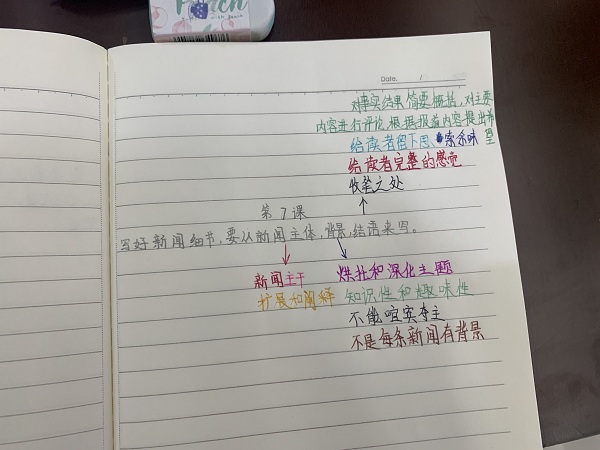 Date. /
对事实结果简要概括,对主要
内容进行评论,根据报道内容提出希望
给读者留下思、索余味
给读者完整的感觉
收笔之处
第7课
写好新闻细节,要从新闻主体,背景,结语来写。
新闻主干 烘托和深化主题
扩展和阐释 知识性和趣味性
不能喧宾夺主
不是每条新闻有背景